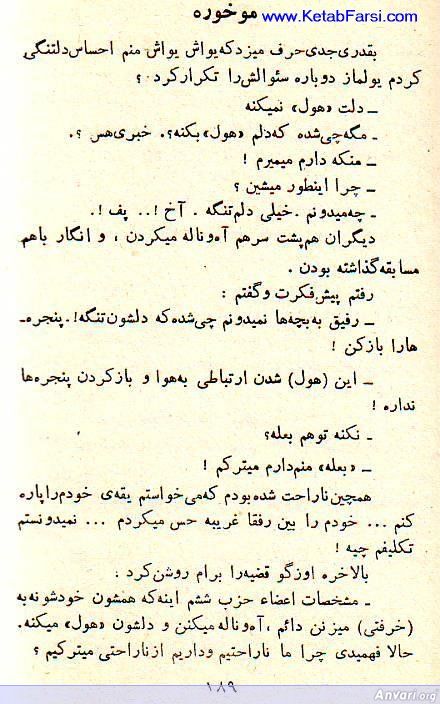 www.KetabFarsi.com
موخوره
بقدری جدی حرف میزد که یواش یواش منم احساس دلتنگی
کردم یولماز دوباره سئوالش را تکرار کرد ؟
ـ دلت «هول» نمیکنه
ـ مگه چی شده که دلم «هول» بکنه؟. خبری هس ؟.
ـ منکه دارم میمیرم !
ـ چرا اینطور میشین ؟
ـ چه میدونم . خیلی دلم تنگه . آخ !.. پف !.
دیگران هم پشت سرهم آه و ناله میکردن ، و انگار باهم
مسابقه گذاشته بودن .
رفتم پیش فکرت و گفتم :
ـ رفیق به بچه‌ها نمیدونم چی شده که دلشون تنگه!. پنجره‌ـ
هارا باز کن !
ـ این (هول) شدن ارتباطی به‌هوا و باز کردن پنجره‌ها
نداره !
ـ نکنه توهم بعله؟
ـ «بعله» منم دارم میترکم !
همچین ناراحت شده بودم که می‌خواستم یقه‌ی خودم را پاره
کنم ... خودم را بین رفقا غریبه حس میکردم ... نمیدونستم
تکلیفم چیه !
بالاخره اوزگو قضیه را برام روشن کرد :
ـ مشخصات اعضاء حزب ششم اینه که همشون خودشونه به
(خرفتی) میزنن دائم ، آه و ناله میکنن و دلشون «هول» میکنه.
حالا فهمیدی چرا ما ناراحتیم و داریم از ناراحتی میترکیم ؟
۱۸۹
Anvari.org